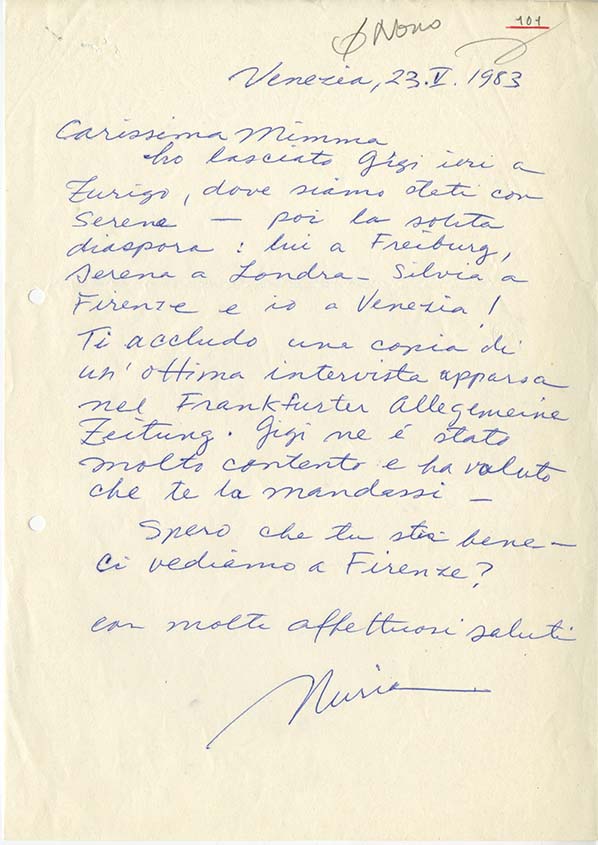 Nono
101
Venezia, 23.V.1983
Carissima Mimma
ho lasciato Gigi ieri a
Zurigo, dove siamo stati con
Serena — poi la solita
diaspora : lui a Freiburg,
Serena a Londra - Silvia a
Firenze e io a Venezia!
Ti accludo una copia di
un'ottima intervista apparsa
nel Frankfurter Allegemeine
Zeitung. Gigi ne é stato
molto contento e ha voluto
che te la mandassi —
Spero che tu stia bene —
ci vediamo a Firenze?
con molti affettuosi saluti
Nuria